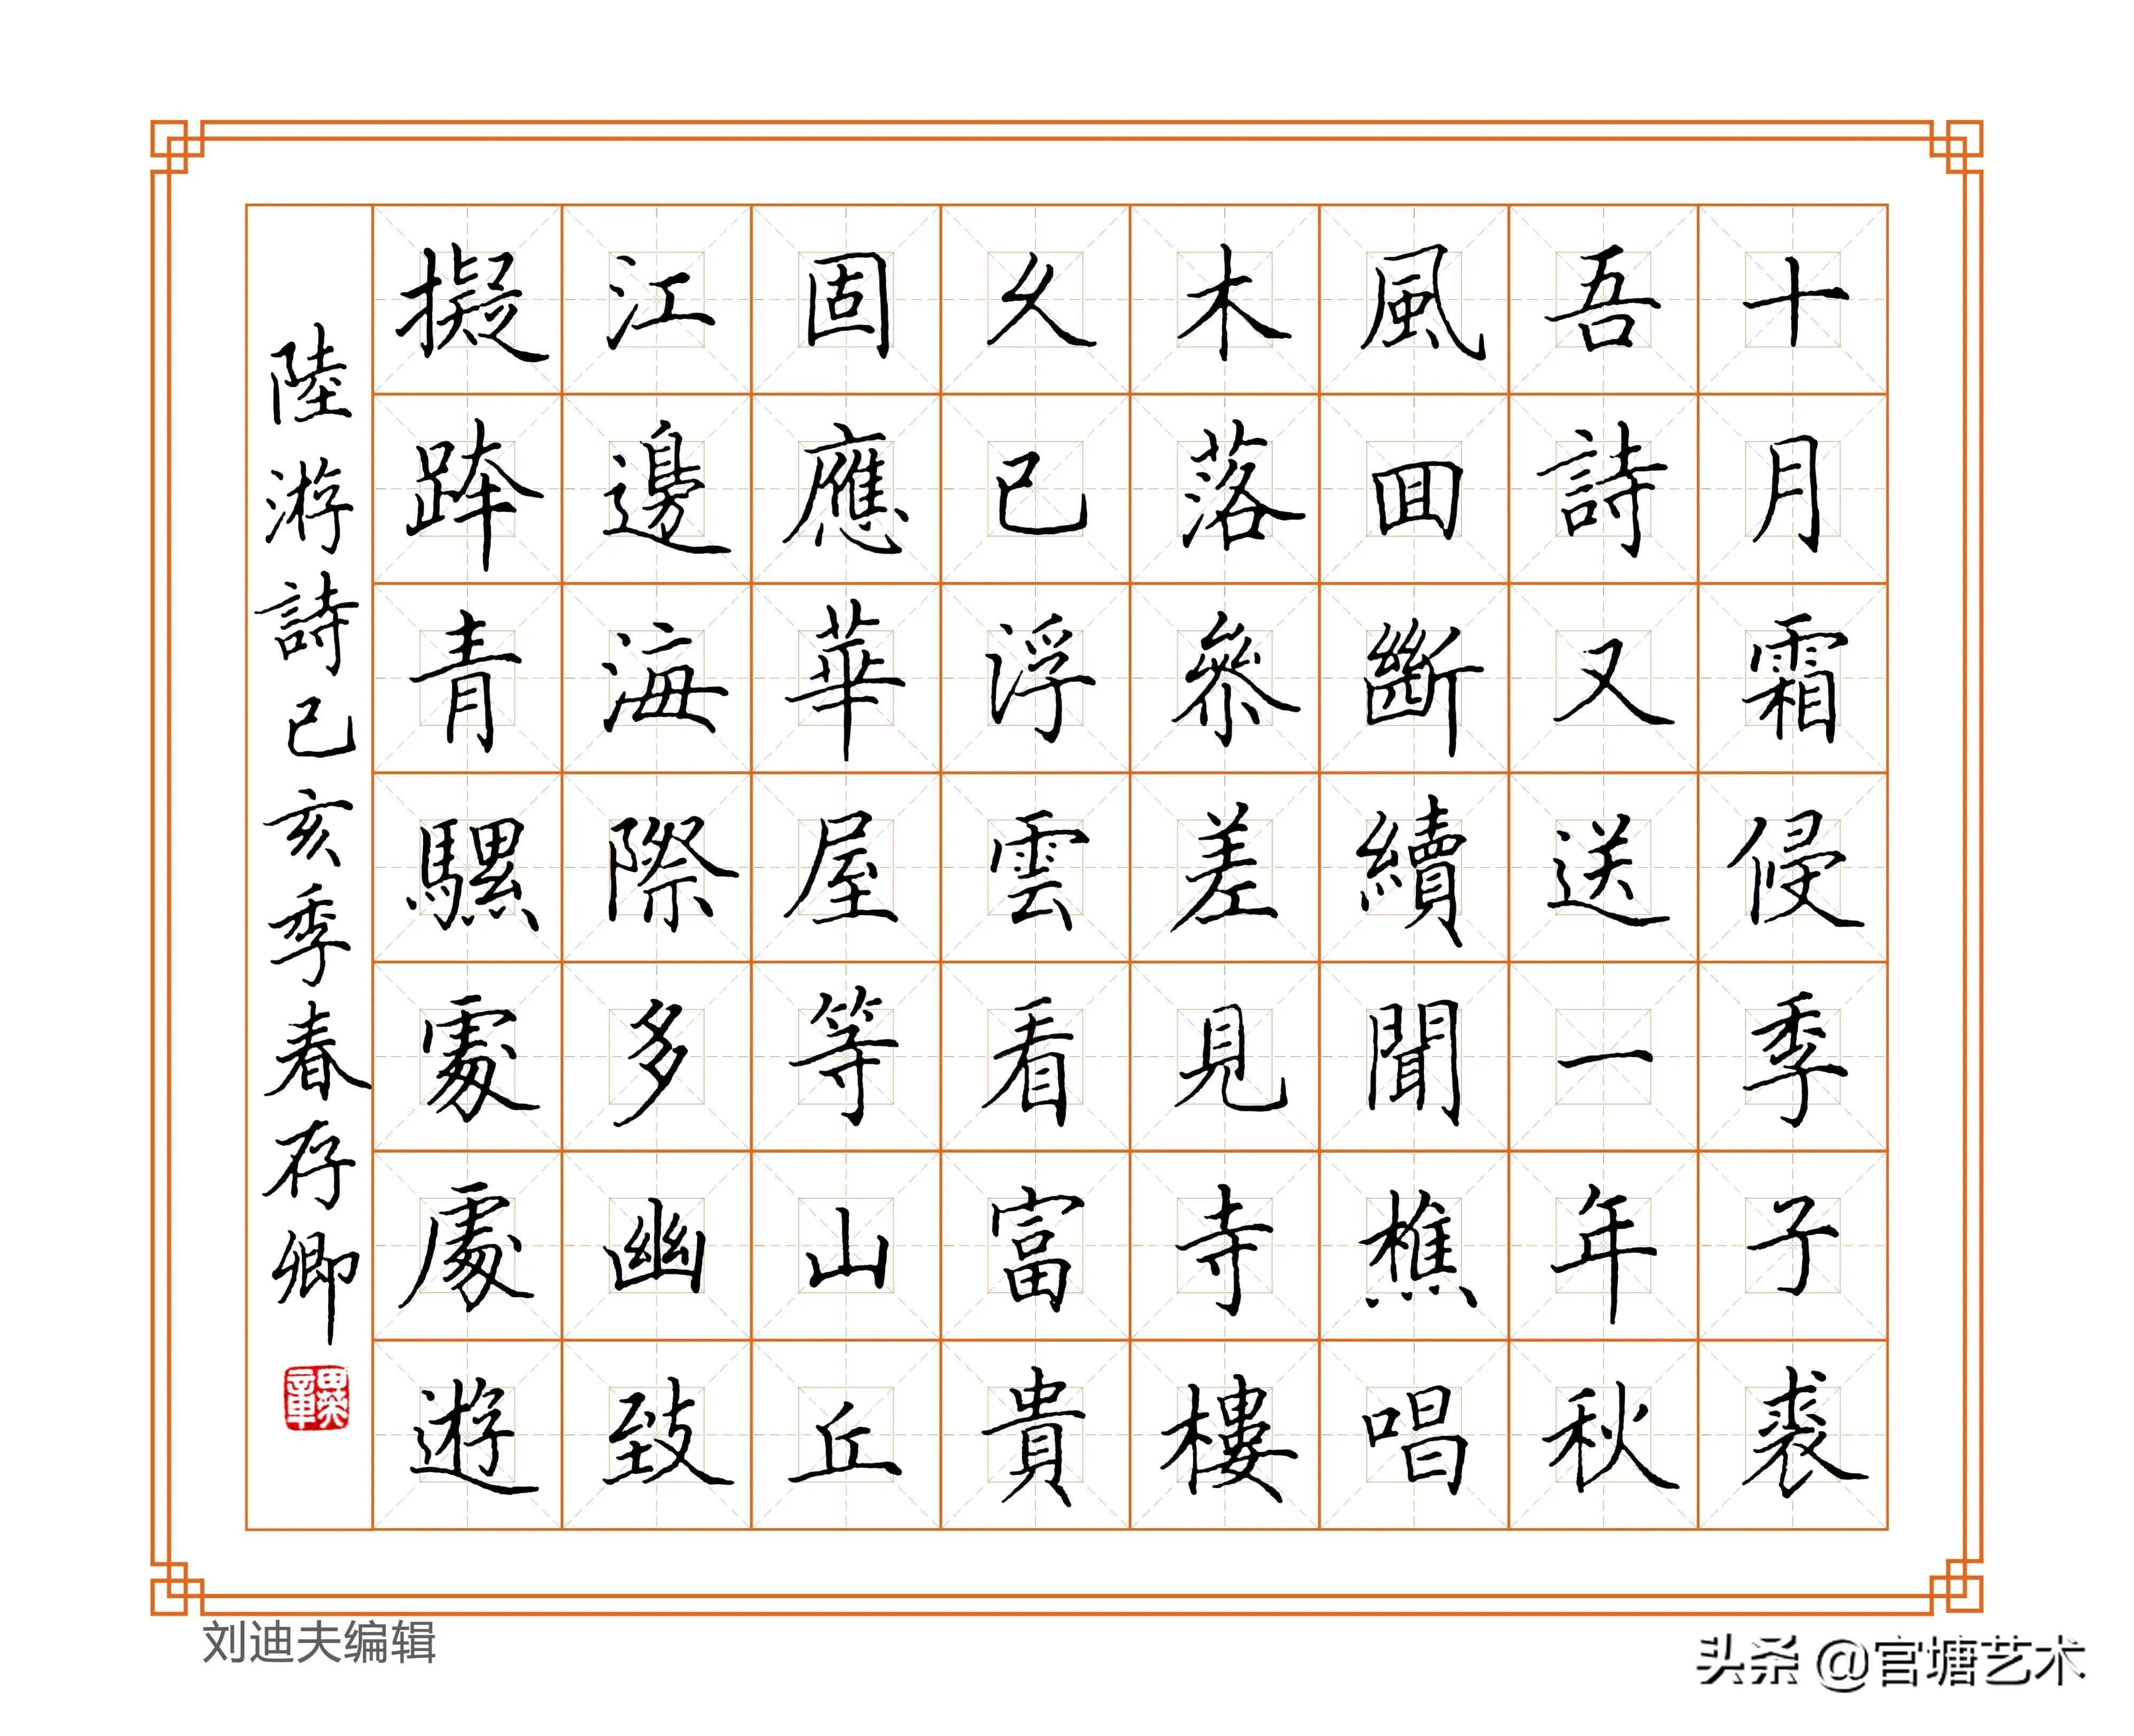 十月霜侵季子裘
吾詩又送一年秋
風回斷續聞樵唱
木落參差見寺樓
久已浮雲看富貴
固應華屋等山丘
江邊海際多幽致
擬跨青騾處處遊
陸游詩己亥季春存卿
刘迪夫编辑
头条 @官塘艺术